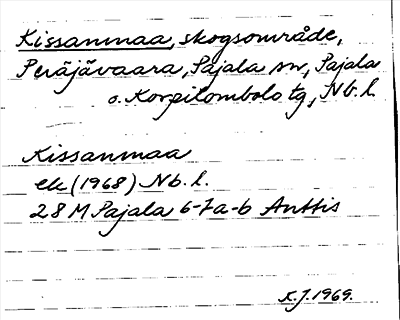 Kissanmaa, skogsområde,
Peräjävaara, Pajala sn, Pajala
o. Korpilombolo tg, Nb. l.
Kissanmaa
ek (1968) Nb. l.
28 M Pajala 6-7 a-b Anttis
K.J. 1969.